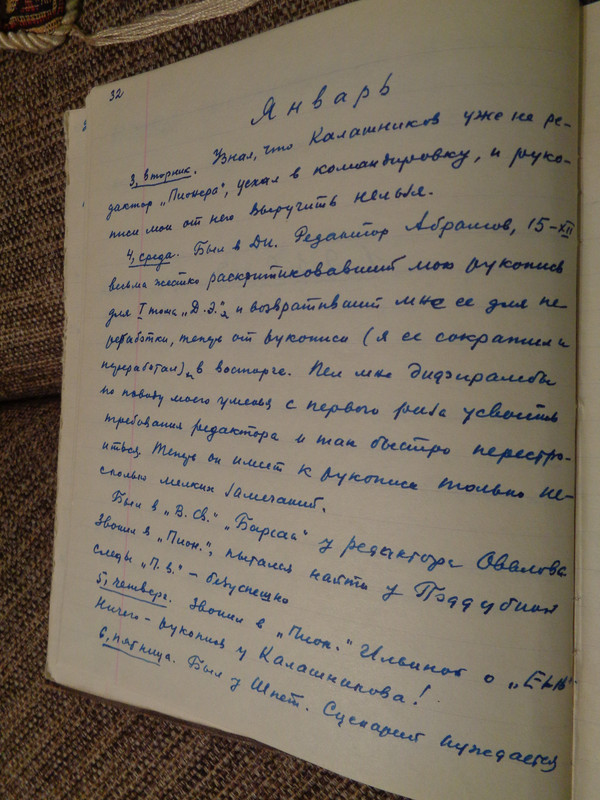 32
Январь
3, вторник. Узнал, что Калашников уже не ре-
дактор „Пионера", уехал в командировку, и руко-
писи мои от него выручить нельзя.
4, среда. Был в ДИ. Редактор Абрамов, 15-XII
весьма жестко раскритиковавший мою рукопись
для I тома „Д.Э." и возвративший мне ее для пе
реработки, теперь от рукописи (я ее сократил и
переработал) в восторге. Пел мне дифирамбы
по поводу моего умения с первого раза усвоить
требования редактора и так быстро перестро-
иться. Теперь он имеет к рукописи только не-
сколько мелких замечаний.
Был в „В. Св." „Барсак" у редактора Овалова.
Звонил в „Пион.", пытался найти у Поддубной
следы „П.В." - безуспешно
5, четверг. Звонил в „Пион." Ильиной о
Ничего - рукопись у Калашникова!
6, пятница. Был у Шпет. Сценарий нуждается